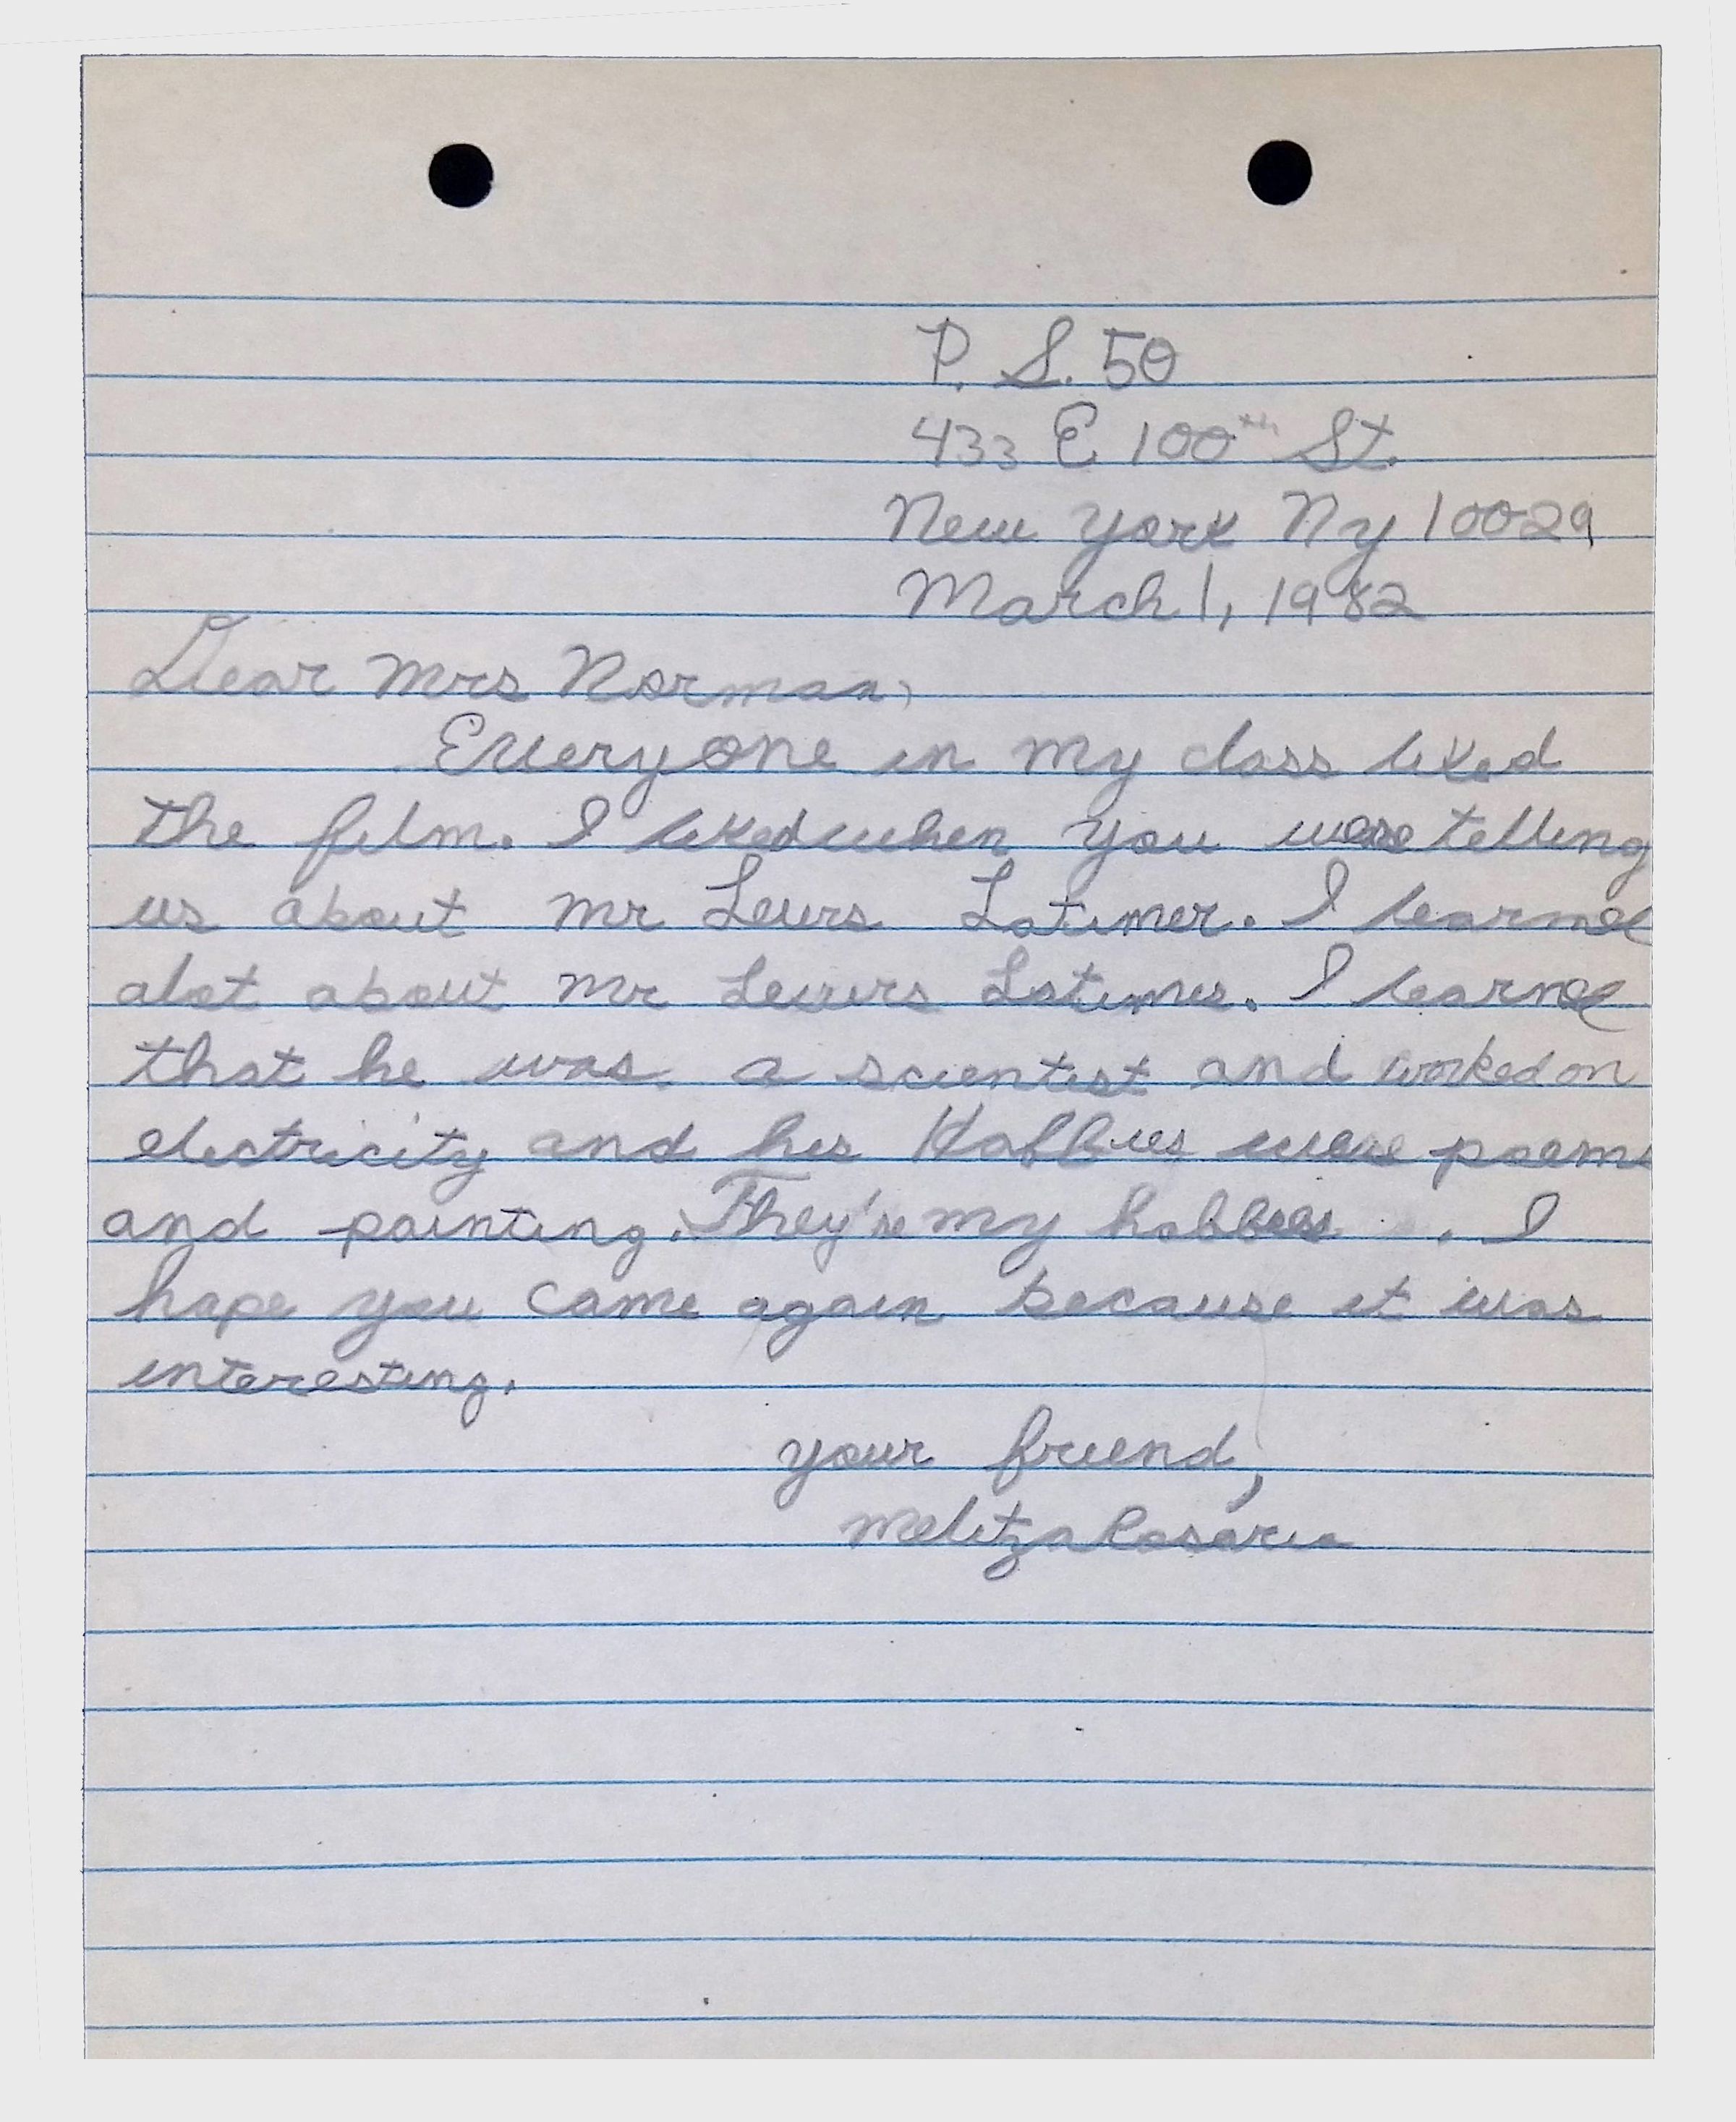 P. S. 50
433 E 100th St.
New York Ny 10029
March 1, 1982
Dear Mrs Norman,
Everyone in my class liked
the film. I liked when you were telling
us about Mr Lewis Latimer. I learned
alot about Mr Lewis Latimer. I learned
that he was a scientist and worked on
electricity and his Hobbies were poems
and painting. They're my hobbies. I
hope you came again because it was
interesting.
your friend,
Melitza Rosario